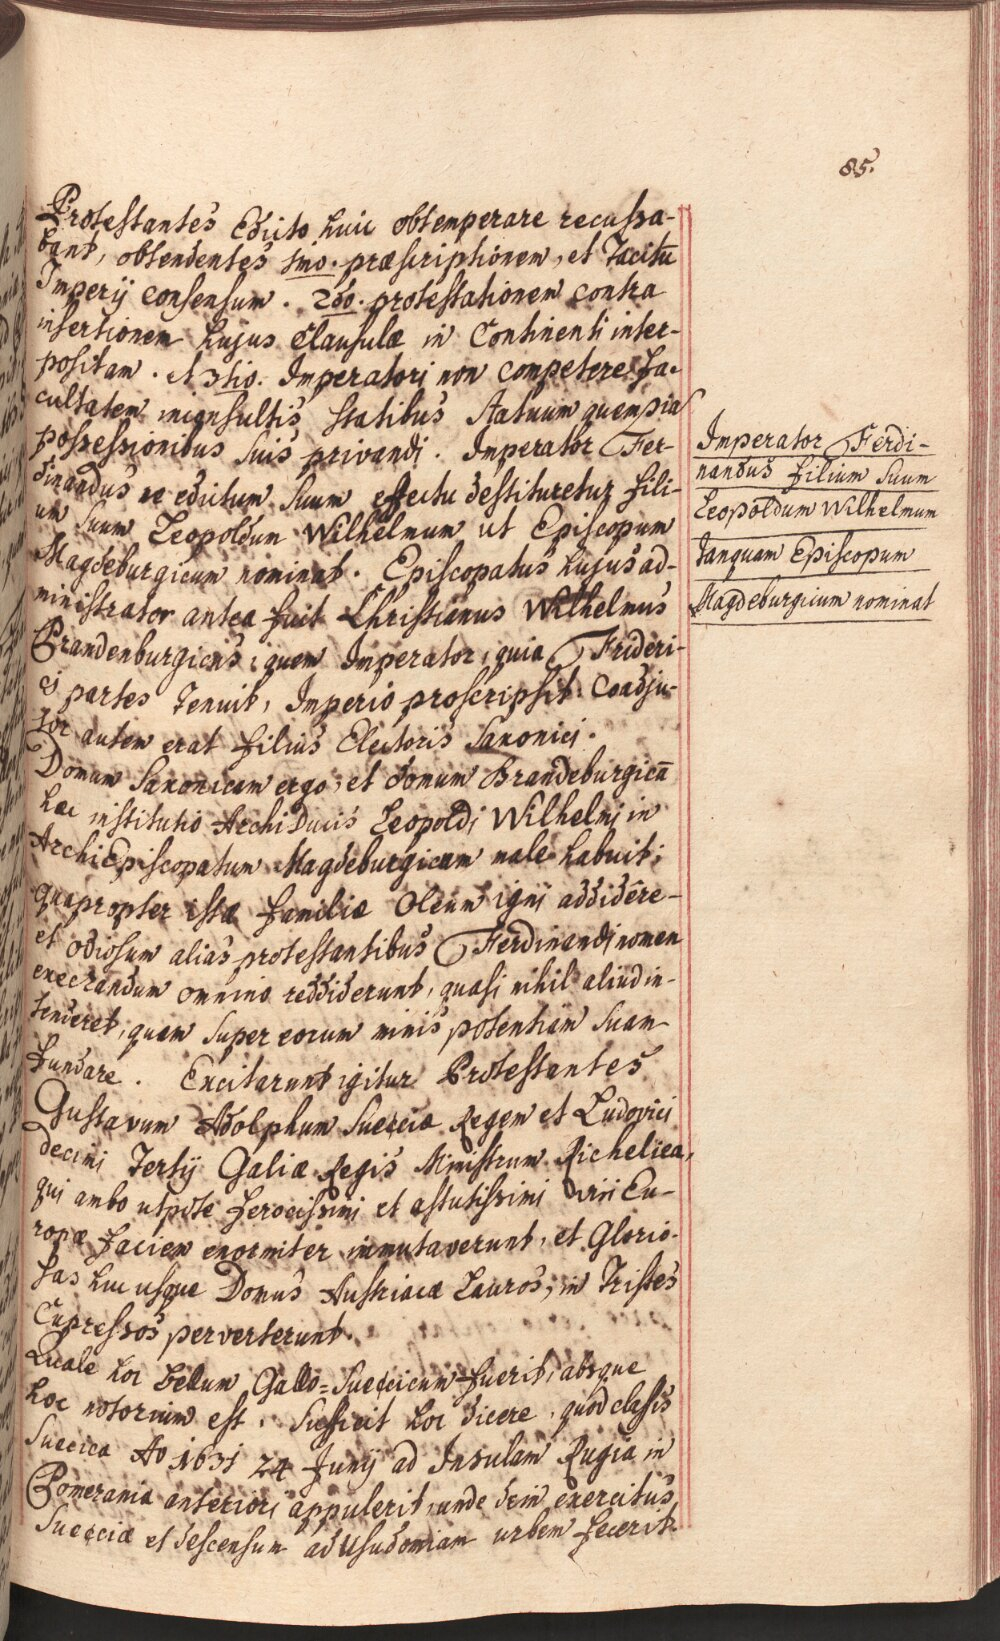 85.
Protestantes Edicto huic obtemperare recussa-
bant, obtendentes 1mo. præscriptionem, et Tacitū
Imperij Consensum. 2do. protestationem Contra
insertionem hujus Clausulæ in Continenti inter-
positam. 3tio. Imperatori non Competere Fa-
cultatem inconsultis Statibus Statuum quempiā
possessionibus suis privandi. Imperator Fer-
dinandus ne edictum suum effectu destitueretur fili-
um suum Leopoldum Wilhelmum ut Episcopum
Magdeburgicum nominat. Episcopatus hujus ad-
ministrator antea fuit Christianus Wilhelmus
Brandenburgicus, quem Imperator, quia Frideri-
ci partes Tenuit, Imperio proscripsit. Coadju-
tor autem erat filius Electoris Saxonici.
Domum Saxonicam ergo, et domum Brandeburgicā
hæc institutio ArchiDucis Leopoldi Wilhelmi in
ArchiEpiscopatum Magdeburgicum male habuit;
quapropter istæ familiæ Oleum igni addidēre
et odiosum alias protestantibus Ferdinandi nomen
execrandum omnino reddiderunt, quasi nihil aliud in-
tenderet, quam super eorum ruinis potentiam suam
fundare. Excitarunt igitur Protestantes
Gustavum Adolphum Sueciæ Regem et Ludovici
decimi Tertij Galiæ Regis Ministrum Richelieu,
qui ambo utpote ferocissimi et astutissimi Virii Eu-
ropæ faciem enormiter immutaverunt, et Glorio-
sas huc usque Domus Austriacæ Lauros, in Tristes
Cupressos perverterunt.
Quale hoc bellum Gallo=Suecicum fuerit, absque
hoc notorium est. Sufficit hoc dicere, quod classis
Suecica Ao 1631 24 Junij ad Insulam Rugia in
Pomerania anteriori appulerit, unde dein exercitus
Sueciæ et descensum ad Usudomiam urbem fecerit.
Imperator Ferdi-
nandus filium suum
Leopoldum Wilhelmum
tanquam Episcopum
Magdeburgicum nominat